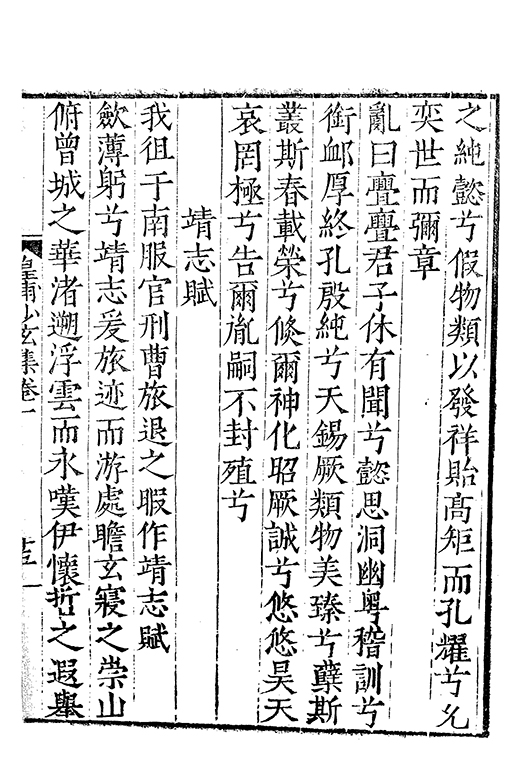 之純懿兮假物類以發祥貽髙矩而孔耀兮允
奕世而彌章
亂曰亹亹君子休有聞兮懿思洞幽粤稽訓兮
銜䘏厚終孔殷純兮天錫厥類物美臻兮蘖斯
叢斯春載榮兮倐爾神化昭厥誠兮悠悠昊天
哀罔極兮告爾胤嗣不封殖兮
靖志賦
我徂于南服官刑曹旅退之暇作靖志賦
歛薄躬兮靖志爰旅迹而游處瞻玄寢之崇山
俯曾城之華渚遡浮雲而永嘆伊懷哲之遐舉
皇甫少玄集卷一